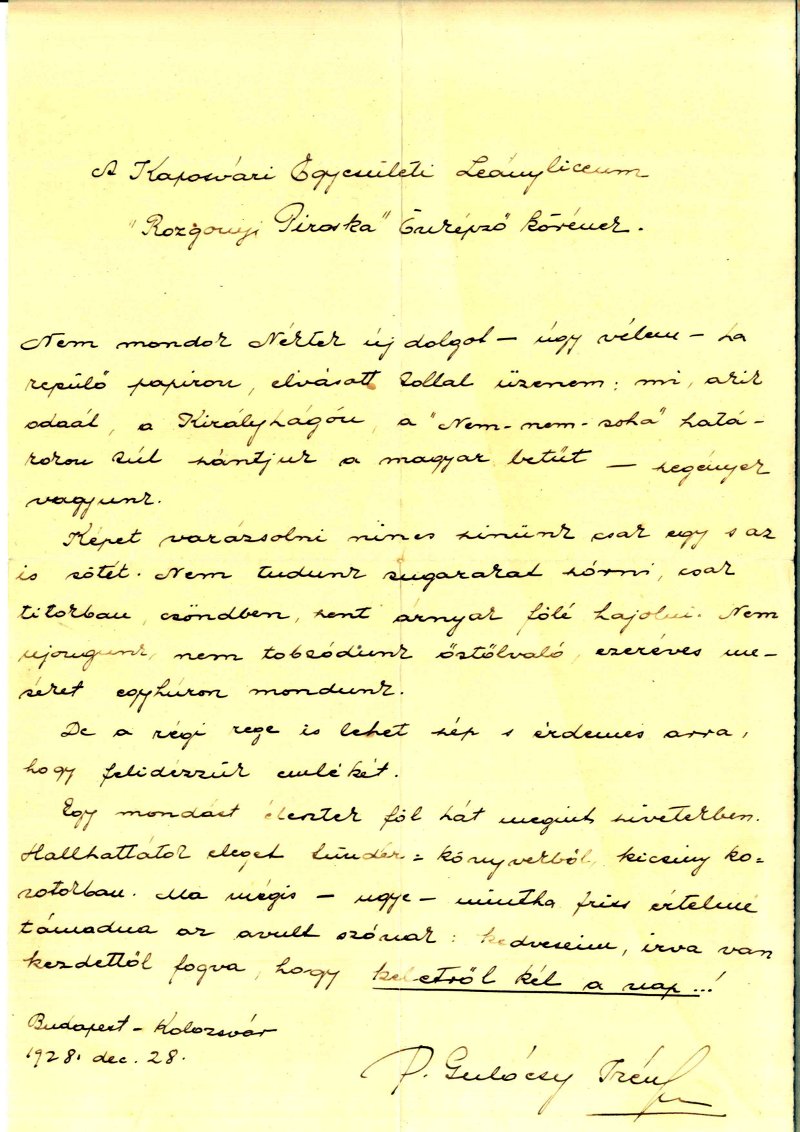 A Kaposvári Egyesületi Leányliceum
"Rozgonyi Piroska" Önképző körének.
Nem mondok Néktek új dolgot – úgy vélem – ha
repülő papiron, elvásott tollal üzenem: mi, akik
odaát, a Királyhágón, a "Nem-nem-soha" hatá-
rokon túl szántjuk a magyar betüt – szegények
vagyunk.
Képet varázsolni nincs szinünk csak egy s az
is sötét. Nem tudunk sugarakat szórni, csak
titokban, csöndben, szent árnyak fölé hajolni. Nem
ujongunk, nem tobzódunk őstölvaló, ezeréves me-
séket egyhúron mondunk.
De a régi rege is lehet szép s érdemes arra,
hogy felidézzük emlékét.
Egy mondást élesztek föl hát megint szivetekben.
Hallhattátok eleget tündér=könyvekből, kicsiny ko-
rotokban. Ma mégis – ugye – mintha friss értelme
támadna az avult szónak: kedveseim, irva van
kezdettől fogva, hogy keletről kél a nap...!
Budapest – Kolozsvár
1928. dec. 28.
P. Gulácsy Irén